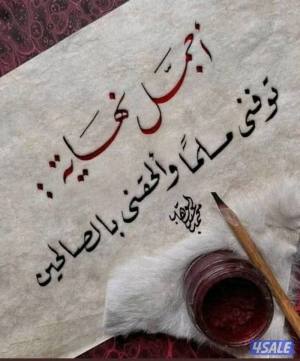 أجمل نهاية:
توفني مسلما وألحقني بالصالحين
4SALE